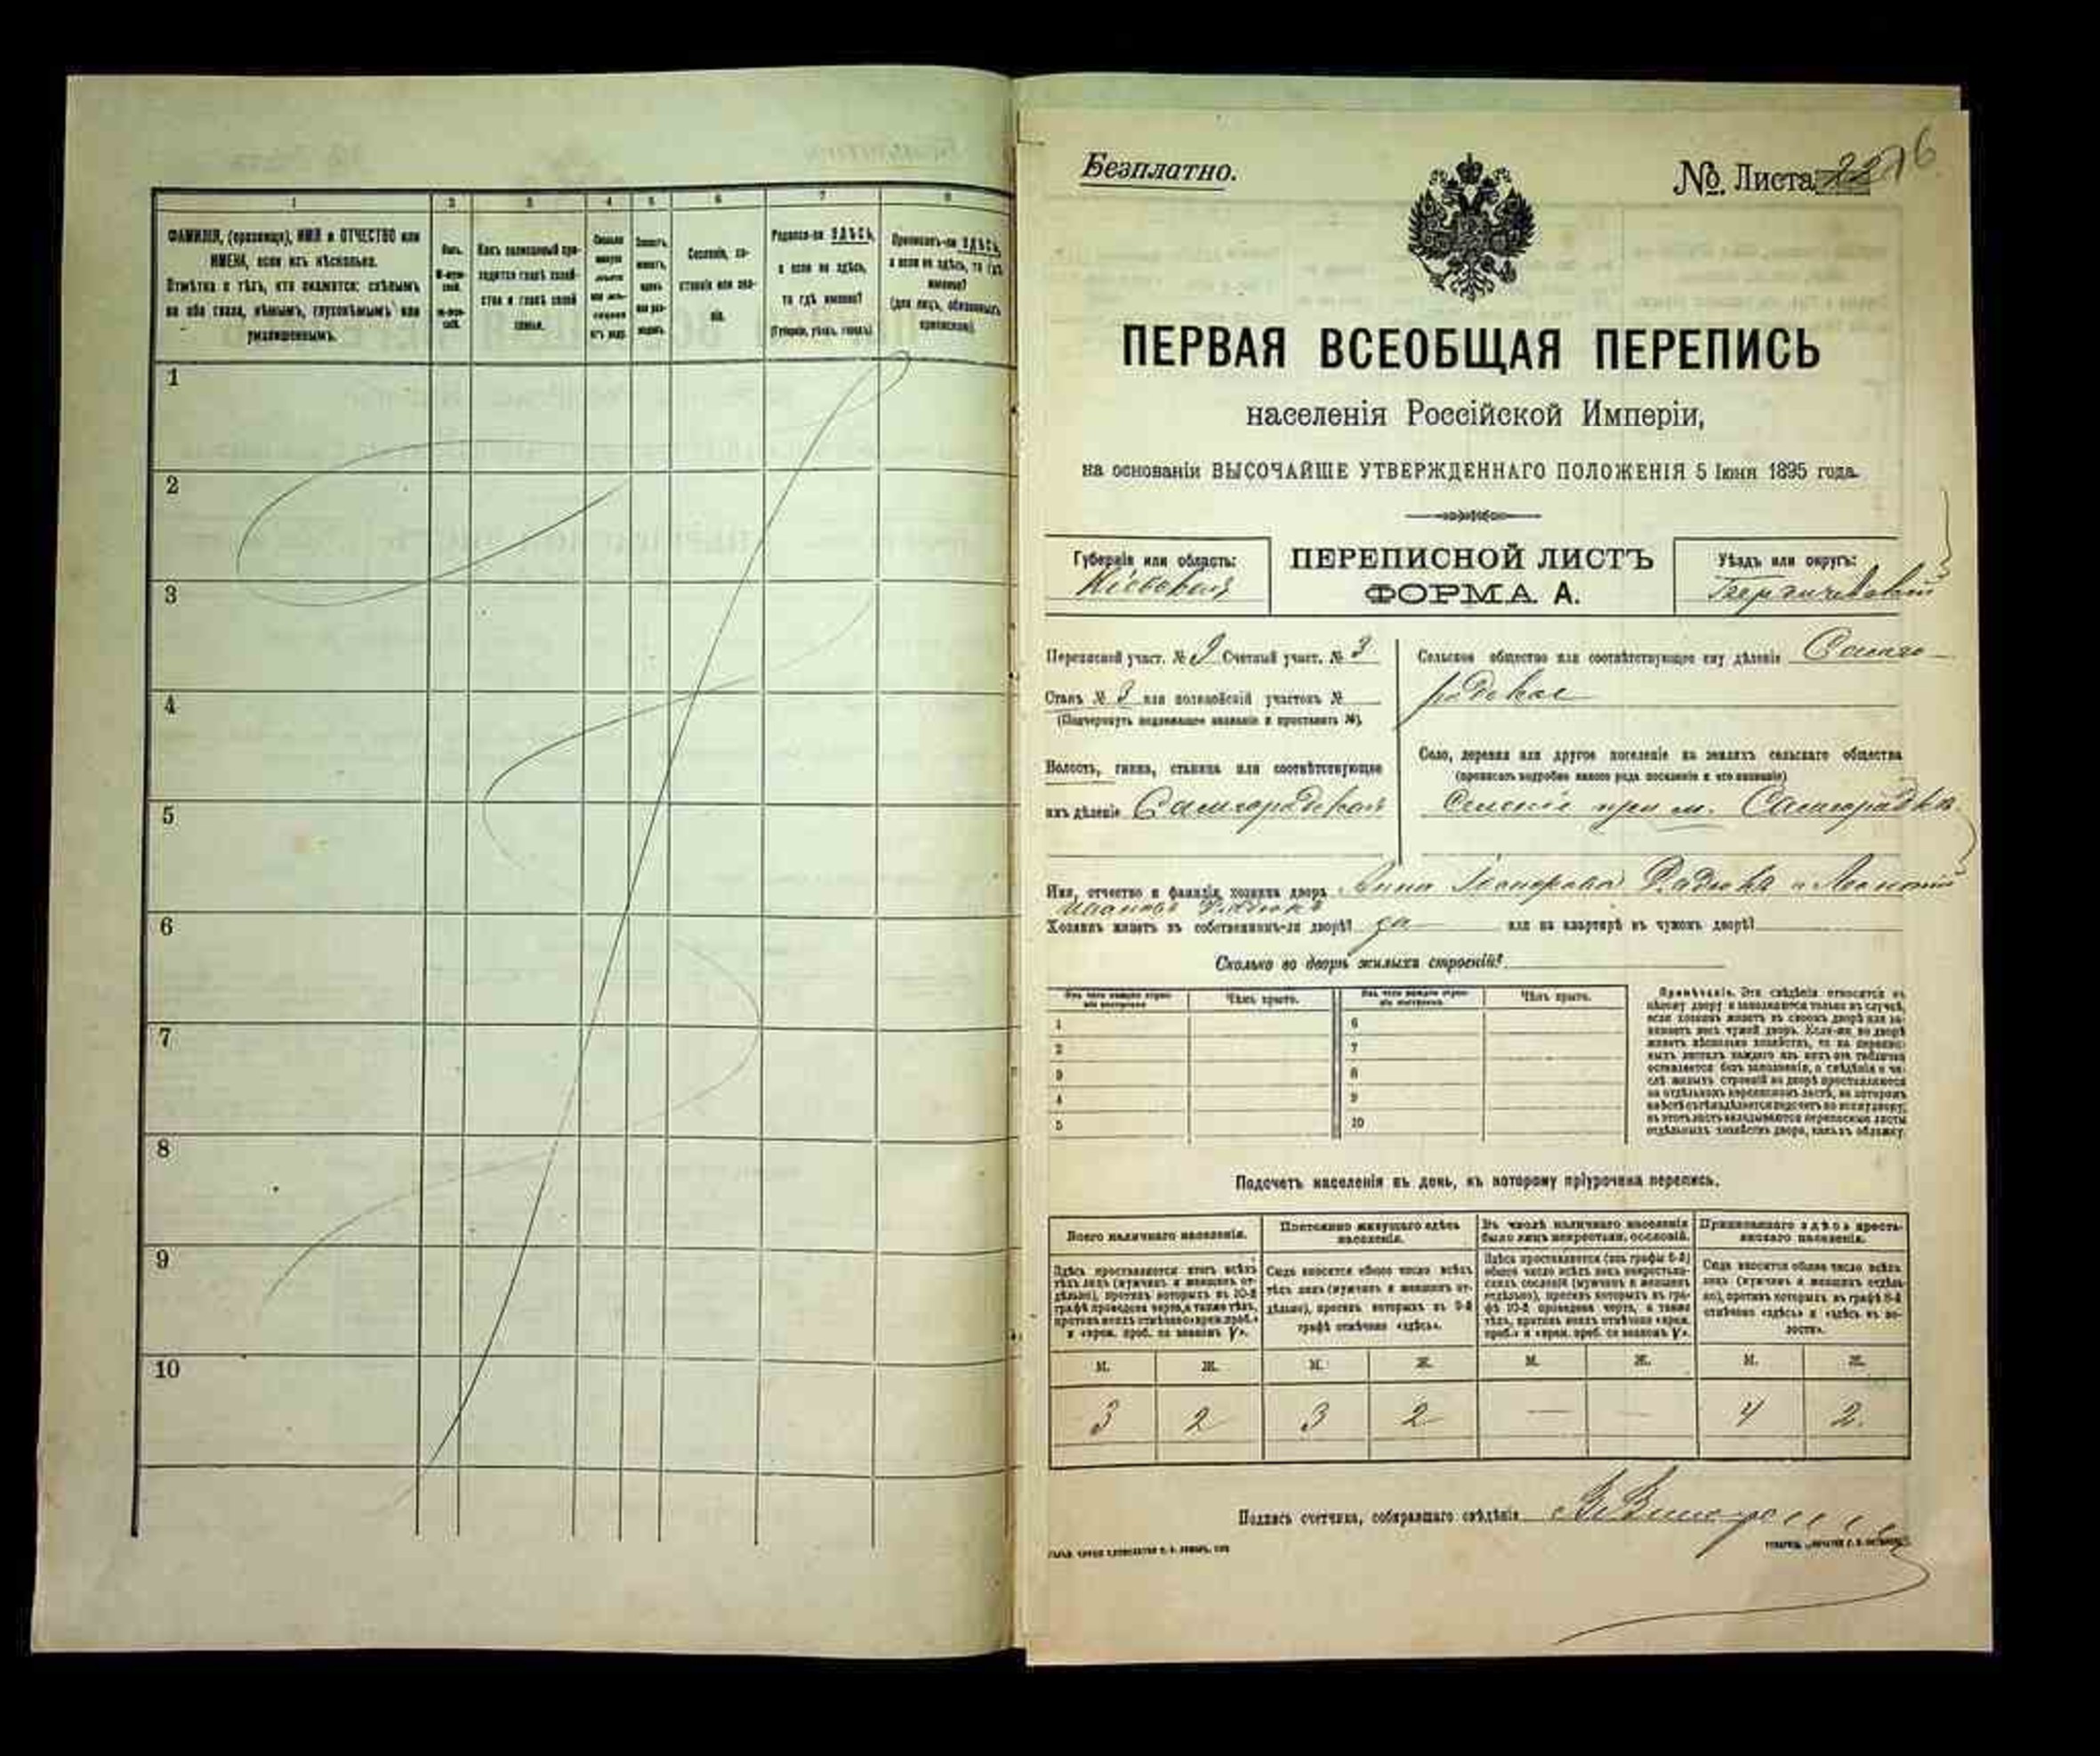 1 2 3 4 5 6 7 8
ФАМИЛІЯ, (прозвище), ИМЯ и ОТЧЕСТВО или
ИМЕНА, если ихъ нѣсколько.
Отмѣтка о тѣхъ, кто окажется: слѣпымъ
на оба глаза, нѣмымъ, глухонѣмымъ или
умалишеннымъ.
Полъ.
М-муж-
ской.
Ж-жен-
скій.
Какъ записанный при-
ходится главѣ хозяй-
ства и главѣ своей
семьи.
Сколько
минуло
лѣтъ
или мѣ-
сяцевъ
отъ роду.
Холостъ,
женатъ,
вдовъ
или раз-
веденъ.
Сословіе, со-
стояніе или зва-
ніе.
Родился-ли ЗДѢСЬ,
а если не здѣсь,
то гдѣ именно?
(Губернія, уѣздъ, городъ)
Приписанъ-ли ЗДѢСЬ,
а если не здѣсь, то гдѣ
именно?
(для лицъ, обязанныхъ
припискою).
1
2
3
4
5
6
7
8
9
10
Безплатно.
№ Листа 22 76
ПЕРВАЯ ВСЕОБЩАЯ ПЕРЕПИСЬ
населенія Россійской Имперіи,
на основаніи ВЫСОЧАЙШЕ УТВЕРЖДЕННАГО ПОЛОЖЕНІЯ 5 Іюня 1895 года.
Губернія или область:
Кіевская
ПЕРЕПИСНОЙ ЛИСТЪ
ФОРМА А.
Уѣздъ или округъ:
Бердичевскій
Переписной участ. № 9 Счетный участ. № 3
Станъ № 3 или полицейскій участокъ №
(Подчеркнуть надлежащее названіе и проставить №).
Волость, гмина, станица или соотвѣтствующее
имъ дѣленіе Самгородская
Сельское общество или соотвѣтствующее ему дѣленіе Самго-
родское
Село, деревня или другое поселеніе на земляхъ сельскаго общества
(прописать подробно какого рода поселеніе и его названіе)
Селеніе при м. Самгородкѣ
Имя, отчество и фамилія хозяина двора Анна
Хозяинъ живетъ въ собственномъ-ли дворѣ? да или на квартирѣ въ чужомъ дворѣ?
Сколько во дворѣ жилыхъ строеній?
Изъ чего каждое строе-
ніе построено
Чѣмъ крыто.
Изъ чего каждое строе-
ніе построено
Чѣмъ крыто.
1 6
2 7
3 8
4 9
5 10
Примѣчаніе. Эти свѣдѣнія относятся къ
цѣлому двору и заполняются только въ случаѣ,
если хозяинъ живетъ въ своемъ дворѣ или за-
нимаетъ весь чужой дворъ. Если-же во дворѣ
живетъ нѣсколько хозяйствъ, то на перепис-
ныхъ листахъ каждаго изъ нихъ эта табличка
оставляется безъ заполненія, а свѣдѣнія о чи-
слѣ жилыхъ строеній во дворѣ проставляются
на отдѣльномъ переписномъ листѣ, на которомъ
отдѣльныхъ хозяйствъ двора, какъ въ обложку.
Подсчетъ населенія въ день, къ которому пріурочена перепись.
Всего наличнаго населенія.
Здѣсь проставляется итогъ всѣхъ
тѣхъ лицъ (мужчинъ и женщинъ от-
дѣльно), противъ которыхъ въ 10-й
графѣ проведена черта, а также тѣхъ,
противъ коихъ отмѣчено «врем. проб.»
и «врем. проб. со знакомъ V».
Постоянно живущаго здѣсь
населенія.
Сюда вносится общее число всѣхъ
тѣхъ лицъ (мужчинъ и женщинъ от-
дѣльно), противъ которыхъ въ 9-й
графѣ отмѣчено «здѣсь».
Въ числѣ наличнаго населенія
было лицъ некрестьян. сословій.
Здѣсь проставляется (изъ графы 6-й)
общее число всѣхъ лицъ некрестьян-
скихъ сословій (мужчинъ и женщинъ
отдѣльно), противъ которыхъ въ гра-
фѣ 10-й проведена черта, а также
тѣхъ, противъ коихъ отмѣчено «врем.
проб.» и «врем. проб. со знакомъ V».
Приписаннаго здѣсь кресть-
янскаго населенія.
Сюда вносится общее число всѣхъ
лицъ (мужчинъ и женщинъ отдѣль-
но), противъ которыхъ въ графѣ 8-й
отмѣчено «здѣсь» и «здѣсь въ во-
лости».
М. Ж. М. Ж. М. Ж. М. Ж.
3 2 3 2 — — 4 2.
Подпись счетчика, собиравшаго свѣдѣнія